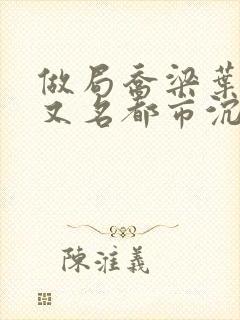 做局乔梁葉
又名都市沉
陳淮義